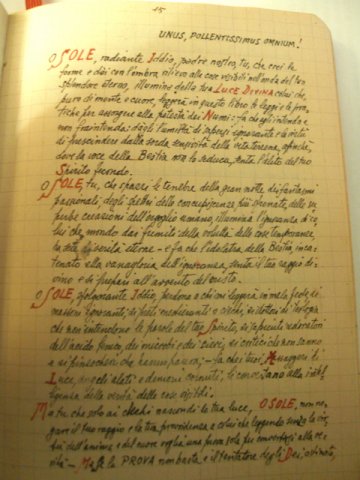 15
UNUS, POLLENTISSIMUS OMNIUM!
O SOLE, radiante Iddio, padre nostro, tu, che crei le
forme e dài con l'ombra rilievo alle cose visibili nell'onda del tuo
splendore eterno, illumina della tua LUCE DIVINA colui che,
puro di mente e cuore, leggerà in questo libro le leggi e le pra-
tiche per assorgere alla potestà dei Numi: fa che egli intenda e
non fraintenda: dagli l'umiltà di sapersi ignorante e la virtù
di prescindere dalla sorda empietà della vita terrena, affinché,
dove la voce della Bestia non lo seduca, senta l'alito del tuo
Spirito fecondo.
O SOLE, tu, che spazzi le tenebre della gran notte di fantasimi
passionali, dagli spettri della concupiscenza più sfrenata, delle su-
perbe creazioni dell'orgoglio umano, illumina l'ignoranza di co-
lui che mondo dai fumiti della voluttà delle cose temporanee,
ha sete di verità eterne – e fa che l'idolatra della Bestia, inca-
tenato alla vanagloria dell'ignoranza, senta il tuo raggio di-
vino e si prepari all'avvento del Cristo.
O SOLE, sfolgorante Iddio, perdona a chi non leggerà in mala fede, ai
massoni ignoranti, ai preti
che non intendono le parole del tuo Spirito, ai sapienti
dell'acido fenico, dei microbi e dei sieri, ai critici che non sanno
e ai pinzocheri che hanno paura; – fa che i tuoi Messaggeri di
Luce, angeli alati e demoni cornuti, li concilino alla intel-
ligenza della verità delle cose visibili.
Ma tu che solo ai ciechi nascondi la tua luce, O SOLE, non ne-
gare il tuo raggio e la tua provvidenza a colui che leggendo senza la vir-
tù dell'animo e del cuore voglia una prova sola per convertirsi alla ve-
rità – Ma se la PROVA non basta e il tentatore degli Dei, ostinato,